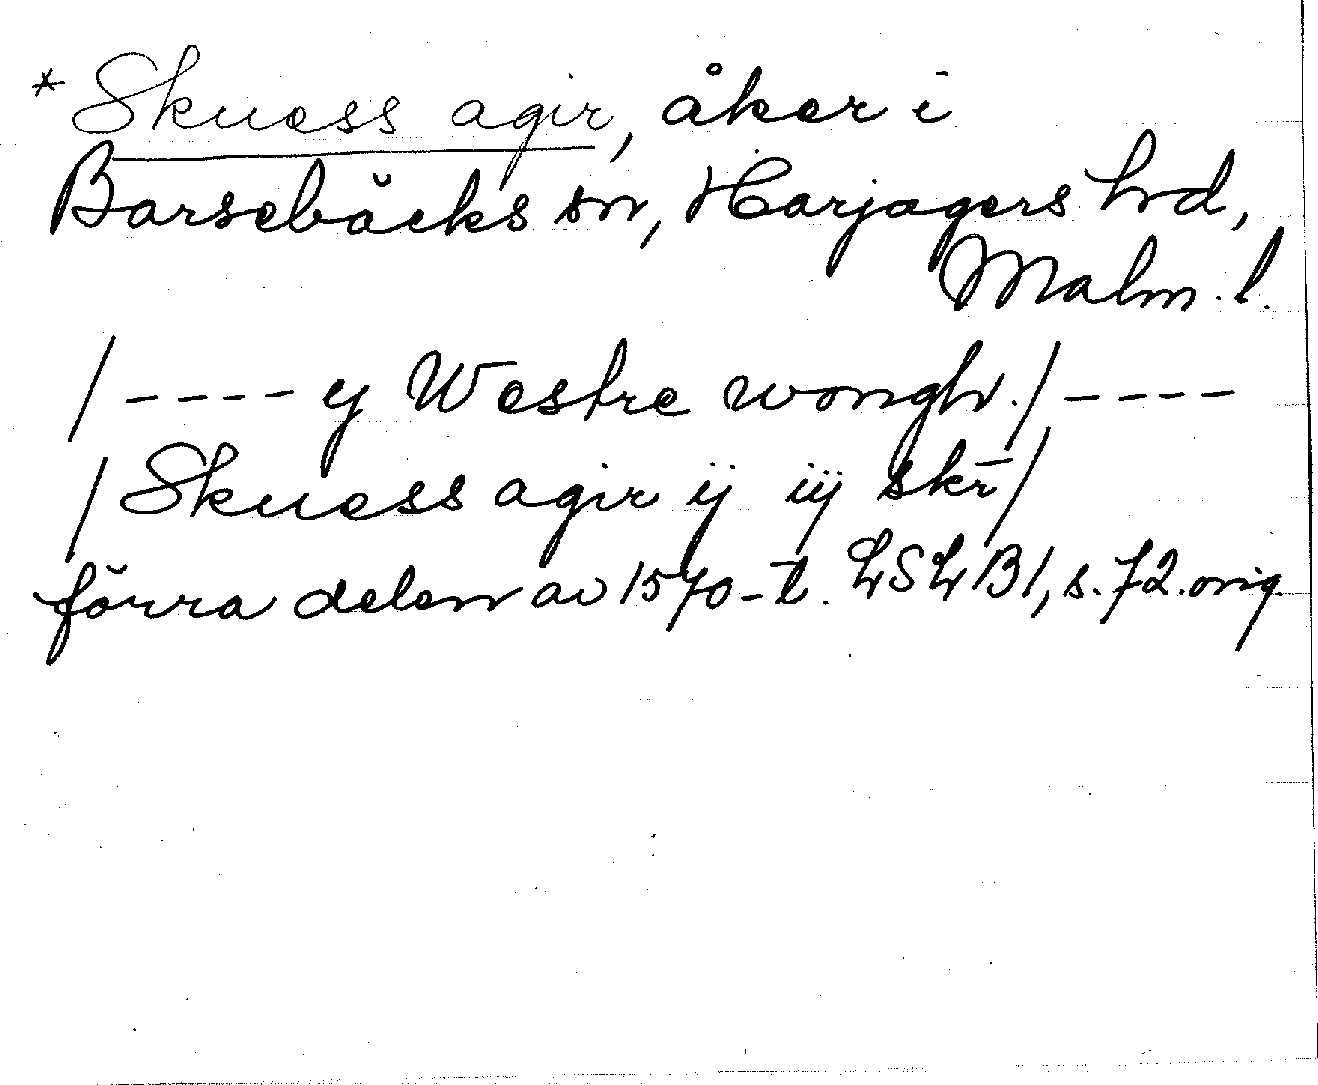 *Skuess agir, åker i
Barsebäcks sn, Harjagers hd,
Malm. l.
/ - - - - y Westre wongh. / - - - -
/ Skuess agir ij iij skr̄ /
förra delen av 1570-t. LSLB1, s. 72. orig.